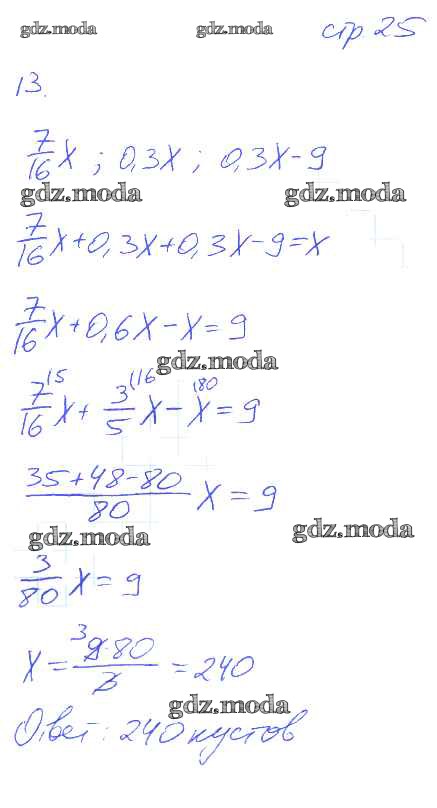 gdz.moda gdz.moda стр 25
13.
7/16 x ; 0,3x ; 0,3x-9
gdz.moda gdz.moda
7/16 x+0,3x+0,3x-9=x
7/16 x+0,6x-x=9
gdz.moda
7/16 (5 x+ 3/5 (16 x- x (80 =9
35+48-80/80 x=9
gdz.moda gdz.moda
3/80 x=9
x= 3 9·80/3 =240
gdz.moda
Ответ: 240 кустов